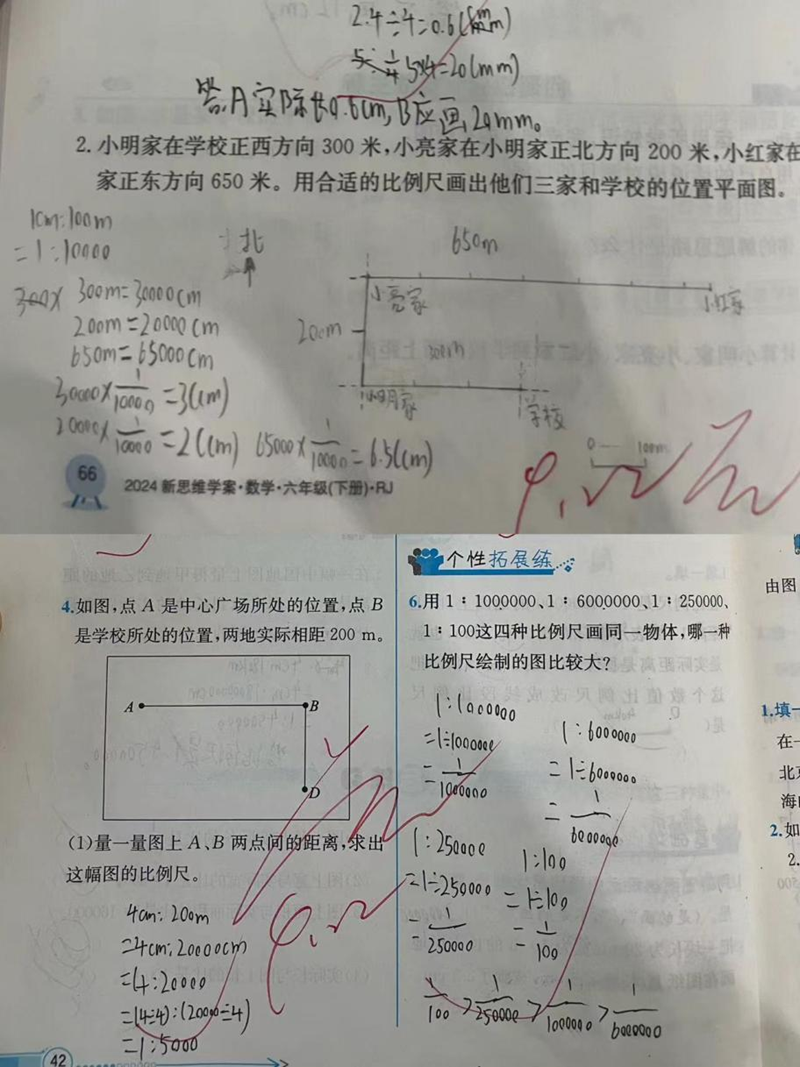 2.4÷4=0.6(mm)
5÷1/4=5×4=20(mm)
答:A实际长0.6cm,B应画20mm。
2.小明家在学校正西方向 300 米,小亮家在小明家正北方向 200 米,小红家在
家正东方向 650 米。用合适的比例尺画出他们三家和学校的位置平面图。
1cm:100m
=1:10000
300m=30000cm
200m=20000cm
650m=65000cm
30000×1/10000=3(cm)
20000×1/10000=2(cm)
65000×1/10000=6.5(cm)
北
650m
小亮家
小红家
200m
300m
小明家
学校
0
100m
66
2024 新思维学案·数学·六年级(下册)·RJ
4.如图,点 A 是中心广场所处的位置,点 B
是学校所处的位置,两地实际相距 200 m。
A
B
D
(1)量一量图上 A、B 两点间的距离,求出
这幅图的比例尺。
4cm:200m
=4cm:20000cm
=4:20000
=(4÷4):(20000÷4)
=1:5000
42
个性拓展练
6.用 1∶1000000、1∶6000000、1∶250000、
1∶100这四种比例尺画同一物体,哪一种
比例尺绘制的图比较大?
1:1000000
=1÷1000000
=1/1000000
1:6000000
=1÷6000000
=1/6000000
1:250000
=1÷250000
=1/250000
1:100
=1÷100
=1/100
1/100>1/250000>1/1000000>1/6000000
由图
1.填一
在一
北京
海的
2.如
2.